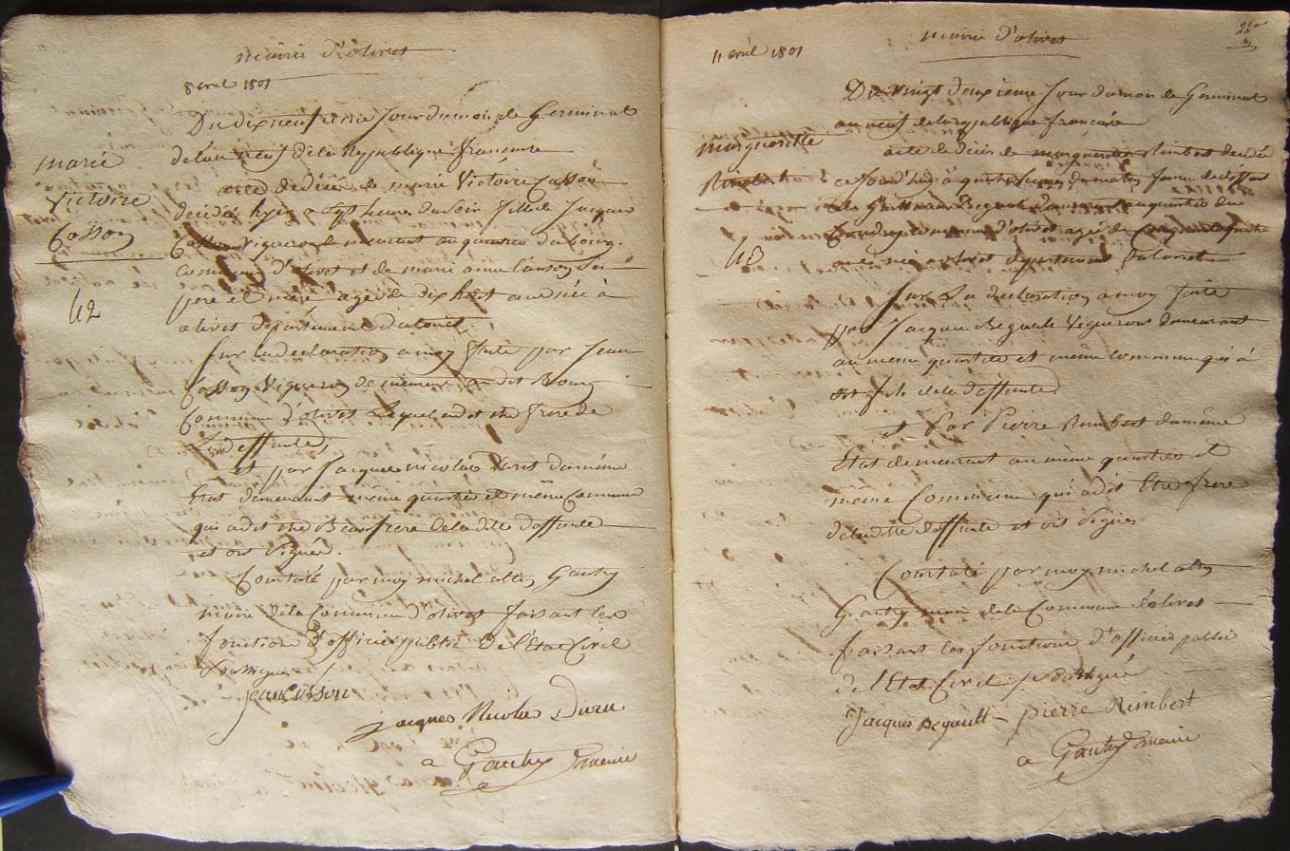 mairie d'olivet
8 avril 1801
Du dix neuf jour du mois de Germinal
de l'an neuf de la Republique francaise
marie
Victoire
Cosson
42
acte de décès de marie Victoire Cosson
décédé hyer a sept heures du soir fille de Jacques
Cosson Vigneron demeurant au quartier du bourg
Commune d'olivet et de marie anne ses
pere et mere agé de dix huit ans née à
olivet département du Loiret
Sur la declaration a moy faite par Jean
Cosson Vigneron demeurant au dit Bourg
Commune d'olivet Lequel a dit etre frere de
La deffunte
et par Jacques nicolas du même
Etat demeurant même quartier et même Commune
qui a dit etre Beaufrere de la dite deffunte
et ont Signés.
Constaté par moy michel Gautry
maire de la Commune d'olivet faisant les
fonctions d'officier public de l'Etat Civil
Soussigné
jean Cosson
jacques Nicolas Duru
a Gautry maire
mairie d'olivet
11 avril 1801
Du Vingt deuxieme Jour du mois de Germinal
an neuf de la republique francaise
marguerite
Rimbert
43
acte de décès de marguerite Rimbert décédé
ce jourd'huy à quatre heures du matin
de Begault demeurant au quartier du
Commune d'olivet agé de
ans née a olivet departement du Loiret
Sur La declaration a moy faite
par Jacques Begault Vigneron demeurant
au même quartier et même Commune qui a
dit fils de la deffunte
et Par Pierre Rimbert du même
Etat demeurant au même quartier et
même Commune qui a dit Etre frere
de la ditte deffunte et ont Signés
Constaté par moy michel
Gautry maire de la Commune d'olivet
faisant les fonctions d'officier public
de l'Etat Civil Soussigné
Jacques Begault pierre Rimbert
a Gautry maire